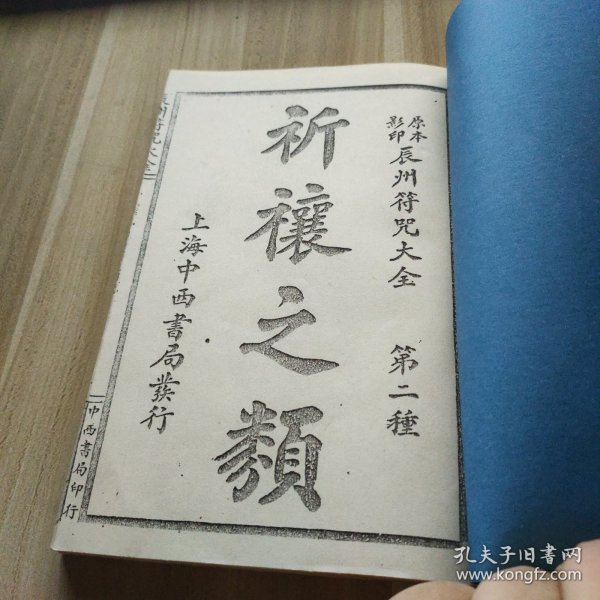 原本
影印
辰州符咒大全 第二種
祈禳之類
上海中西書局發行
辰州符咒大全
中西書局印行
孔夫子旧书网
www.kongfz.com